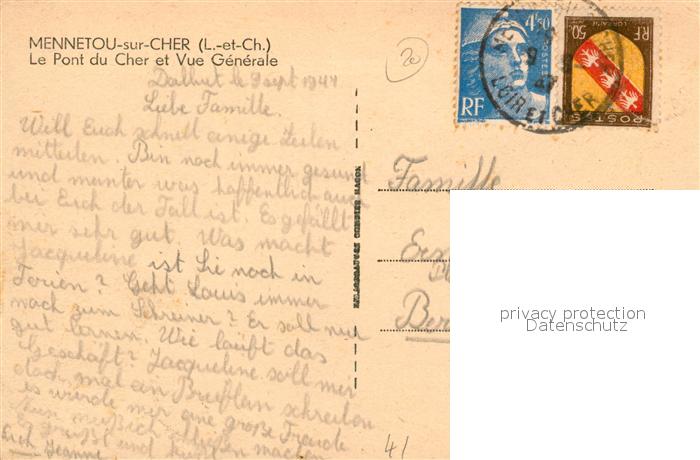 MENNETOU-sur-CHER (L.-et-Ch.)
Le Pont du Cher et Vue Générale
le 9 sept 1947
Liebe Famille.
Will Euch schnell einige Zeilen
mitteilen. Bin noch immer gesund
und munter was hoffentlich auch
bei Euch der Fall ist. Es gefällt
mir sehr gut. Was macht
Jacqueline ist Sie noch in
Ferien? Geht Louis immer
nach zum Schreiner? Er soll nur
gut lernen. Wie läuft das
Geschäft? Jacqueline soll mir
doch mal ein Brieflein schreiben
es würde mir eine große Freude
machen
Es grüßt und küßt
Euch Jeanne
20
4F50
POSTES
RF
LORRAINE
50c
RF
POSTES
LOIR ET CHER
Famille
41
privacy protection
Datenschutz